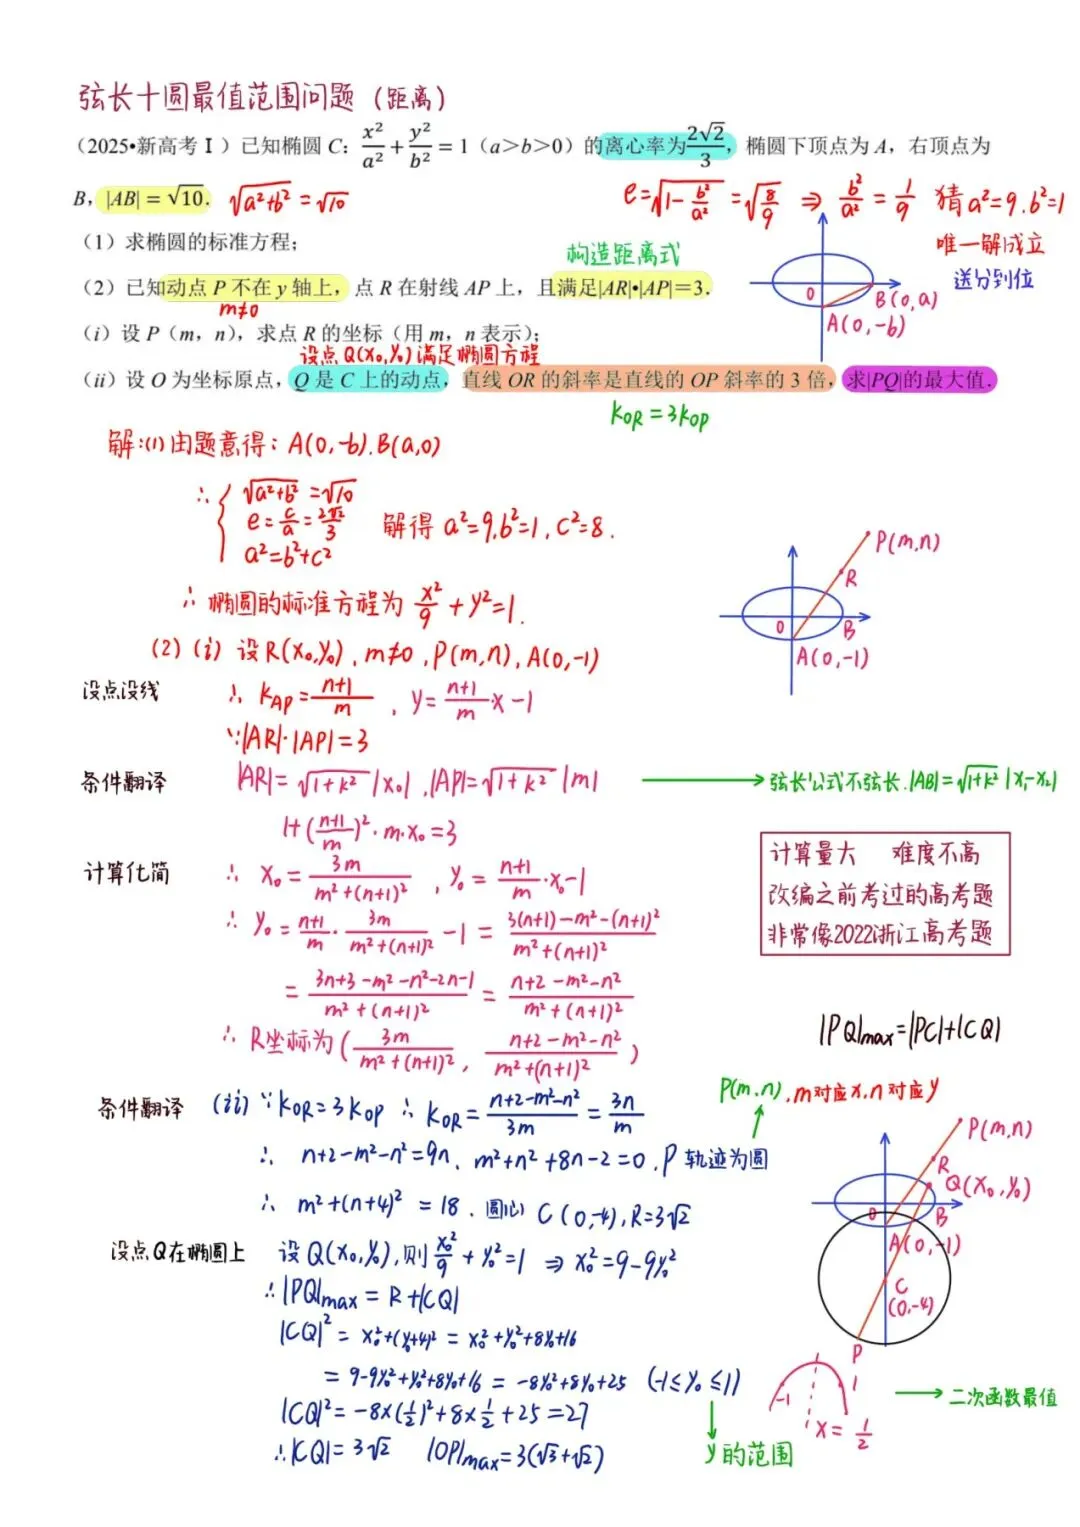 弦长十圆最值范围问题（距离）
（2025•新高考Ⅰ）已知椭圆 C：x²/a²+y²/b²=1（a＞b＞0）的离心率为2√2/3，椭圆下顶点为 A，右顶点为
B，|AB|=√10． √(a²+b²)=√10
e=√(1-b²/a²)=√(8/9) ⇒ b²/a²=1/9 猜a²=9.b²=1
（1）求椭圆的标准方程；
唯一解成立
送分到位
构造距离式
（2）已知动点 P 不在 y 轴上，点 R 在射线 AP 上，且满足|AR|•|AP|＝3．
m≠0
0
B(0,a)
A(0,-b)
（i）设 P（m，n），求点 R 的坐标（用 m，n 表示）；
设点Q(x₀,y₀)满足椭圆方程
（ii）设 O 为坐标原点，Q 是 C 上的动点，直线 OR 的斜率是直线的 OP 斜率的 3 倍，求|PQ|的最大值．
k_OR=3k_OP
解:(1)由题意得：A(0,-b).B(a,0)
∴ { √(a²+b²)=√10
e=c/a=2√2/3
a²=b²+c²
解得 a²=9,b²=1,c²=8.
∴椭圆的标准方程为 x²/9+y²=1.
P(m,n)
R
0
B
A(0,-1)
(2)(i)设R(x₀,y₀),m≠0,P(m,n),A(0,-1)
设点设线
∴ k_AP=(n+1)/m , y=(n+1)/m·x-1
∵|AR|·|AP|=3
条件翻译
|AR|=√(1+k²)|x₀|,|AP|=√(1+k²)|m|
弦长公式不弦长.|AB|=√(1+k²)|x₁-x₂|
1+((n+1)/m)²·m·x₀=3
计算化简
∴ x₀=3m/(m²+(n+1)²) , y₀=(n+1)/m·x₀-1
∴ y₀=(n+1)/m·3m/(m²+(n+1)²)-1=(3(n+1)-m²-(n+1)²)/(m²+(n+1)²)
=(3n+3-m²-n²-2n-1)/(m²+(n+1)²)=(n+2-m²-n²)/(m²+(n+1)²)
∴ R坐标为(3m/(m²+(n+1)²), (n+2-m²-n²)/(m²+(n+1)²))
计算量大 难度不高
改编之前考过的高考题
非常像2022浙江高考题
|PQ|max=|PC|+|CQ|
P(m,n).m对应x,n对应y
条件翻译
(ii)∵k_OR=3k_OP ∴k_OR=(n+2-m²-n²)/3m=3n/m
∴ n+2-m²-n²=9n、m²+n²+8n-2=0,P轨迹为圆
∴ m²+(n+4)²=18.圆心C(0,-4),R=3√2
P(m,n)
R
Q(x₀,y₀)
0
B
A(0,-1)
C
(0,-4)
P
设点Q在椭圆上
设Q(x₀,y₀),则x₀²/9+y₀²=1 ⇒ x₀²=9-9y₀²
∴|PQ|max=R+|CQ|
|CQ|²=x₀²+(y₀+4)²=x₀²+y₀²+8y₀+16
=9-9y₀²+y₀²+8y₀+16=-8y₀²+8y₀+25 (-1≤y₀≤1)
y的范围
|CQ|²=-8×(1/2)²+8×1/2+25=27
∴|CQ|=3√2 |OP|max=3(√3+√2)
-1
1
x=1/2
二次函数最值